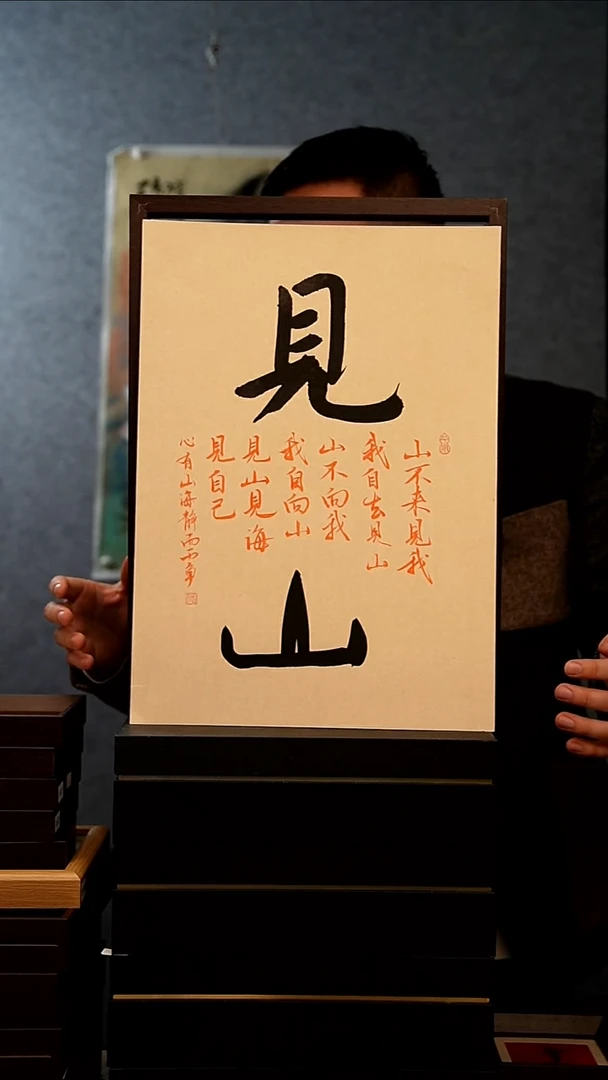 見
山
山不来見我
我自去見山
山不向我
我自向山
見山見海
見自己
心有山海静而不争